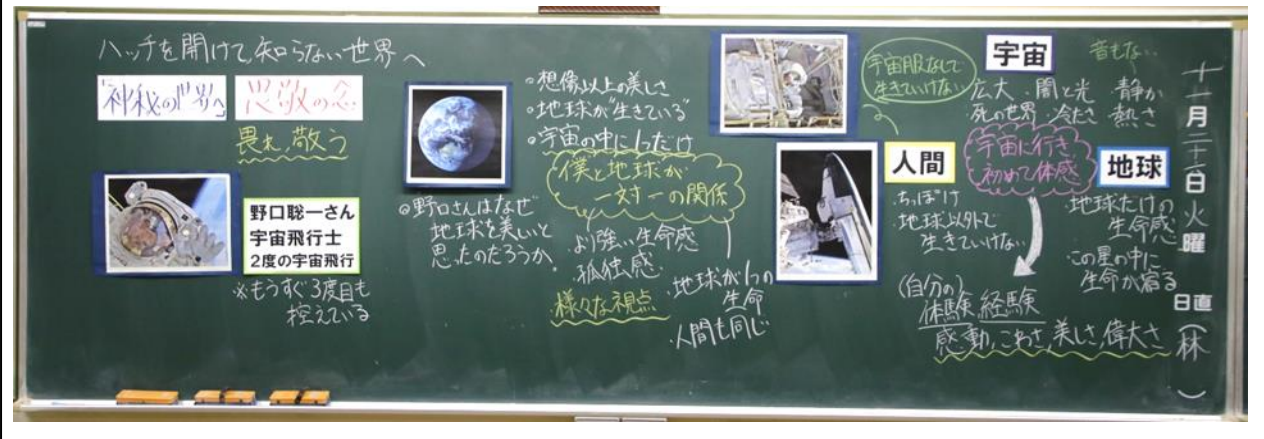 ハッチを開けて、知らない世界へ
「神秘の世界へ」
畏敬の念
畏れ、敬う
野口聡一さん
宇宙飛行士
2度の宇宙飛行
※もうすぐ3度目も
控えている
◦想像以上の美しさ
◦地球が“生きている”
◦宇宙の中に1つだけ
僕と地球が
一対一の関係
◎野口さんはなぜ
地球を美しいと
思ったのだろうか。
より強い生命感
孤独感
様々な視点
地球が1つの
生命
人間も同じ
宇宙服なしで
生きていけない
宇宙
音もない
広大 闇と光 静か
死の世界 冷たさ 熱さ
人間
ちっぽけ
地球以外で
生きていけない
宇宙に行き
初めて体感
地球
地球だけの
生命感
この星の中に
生命が宿る
(自分の)
体験、経験
感動、こわさ、美しさ、偉大さ
火曜日
日直(林 )